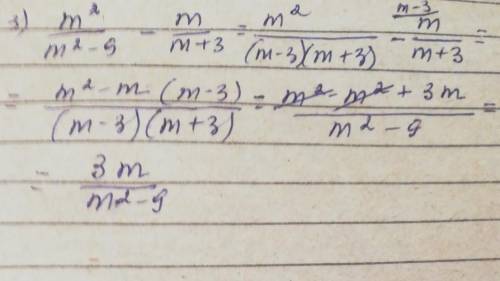 з) m²/(m²-9) - m/(m+3) = m²/((m-3)(m+3)) - m-3⁄ m/(m+3) =
= (m²-m (m-3))/((m-3)(m+3)) = (m²-m²+3m)/(m²-9) =
= 3m/(m²-9)